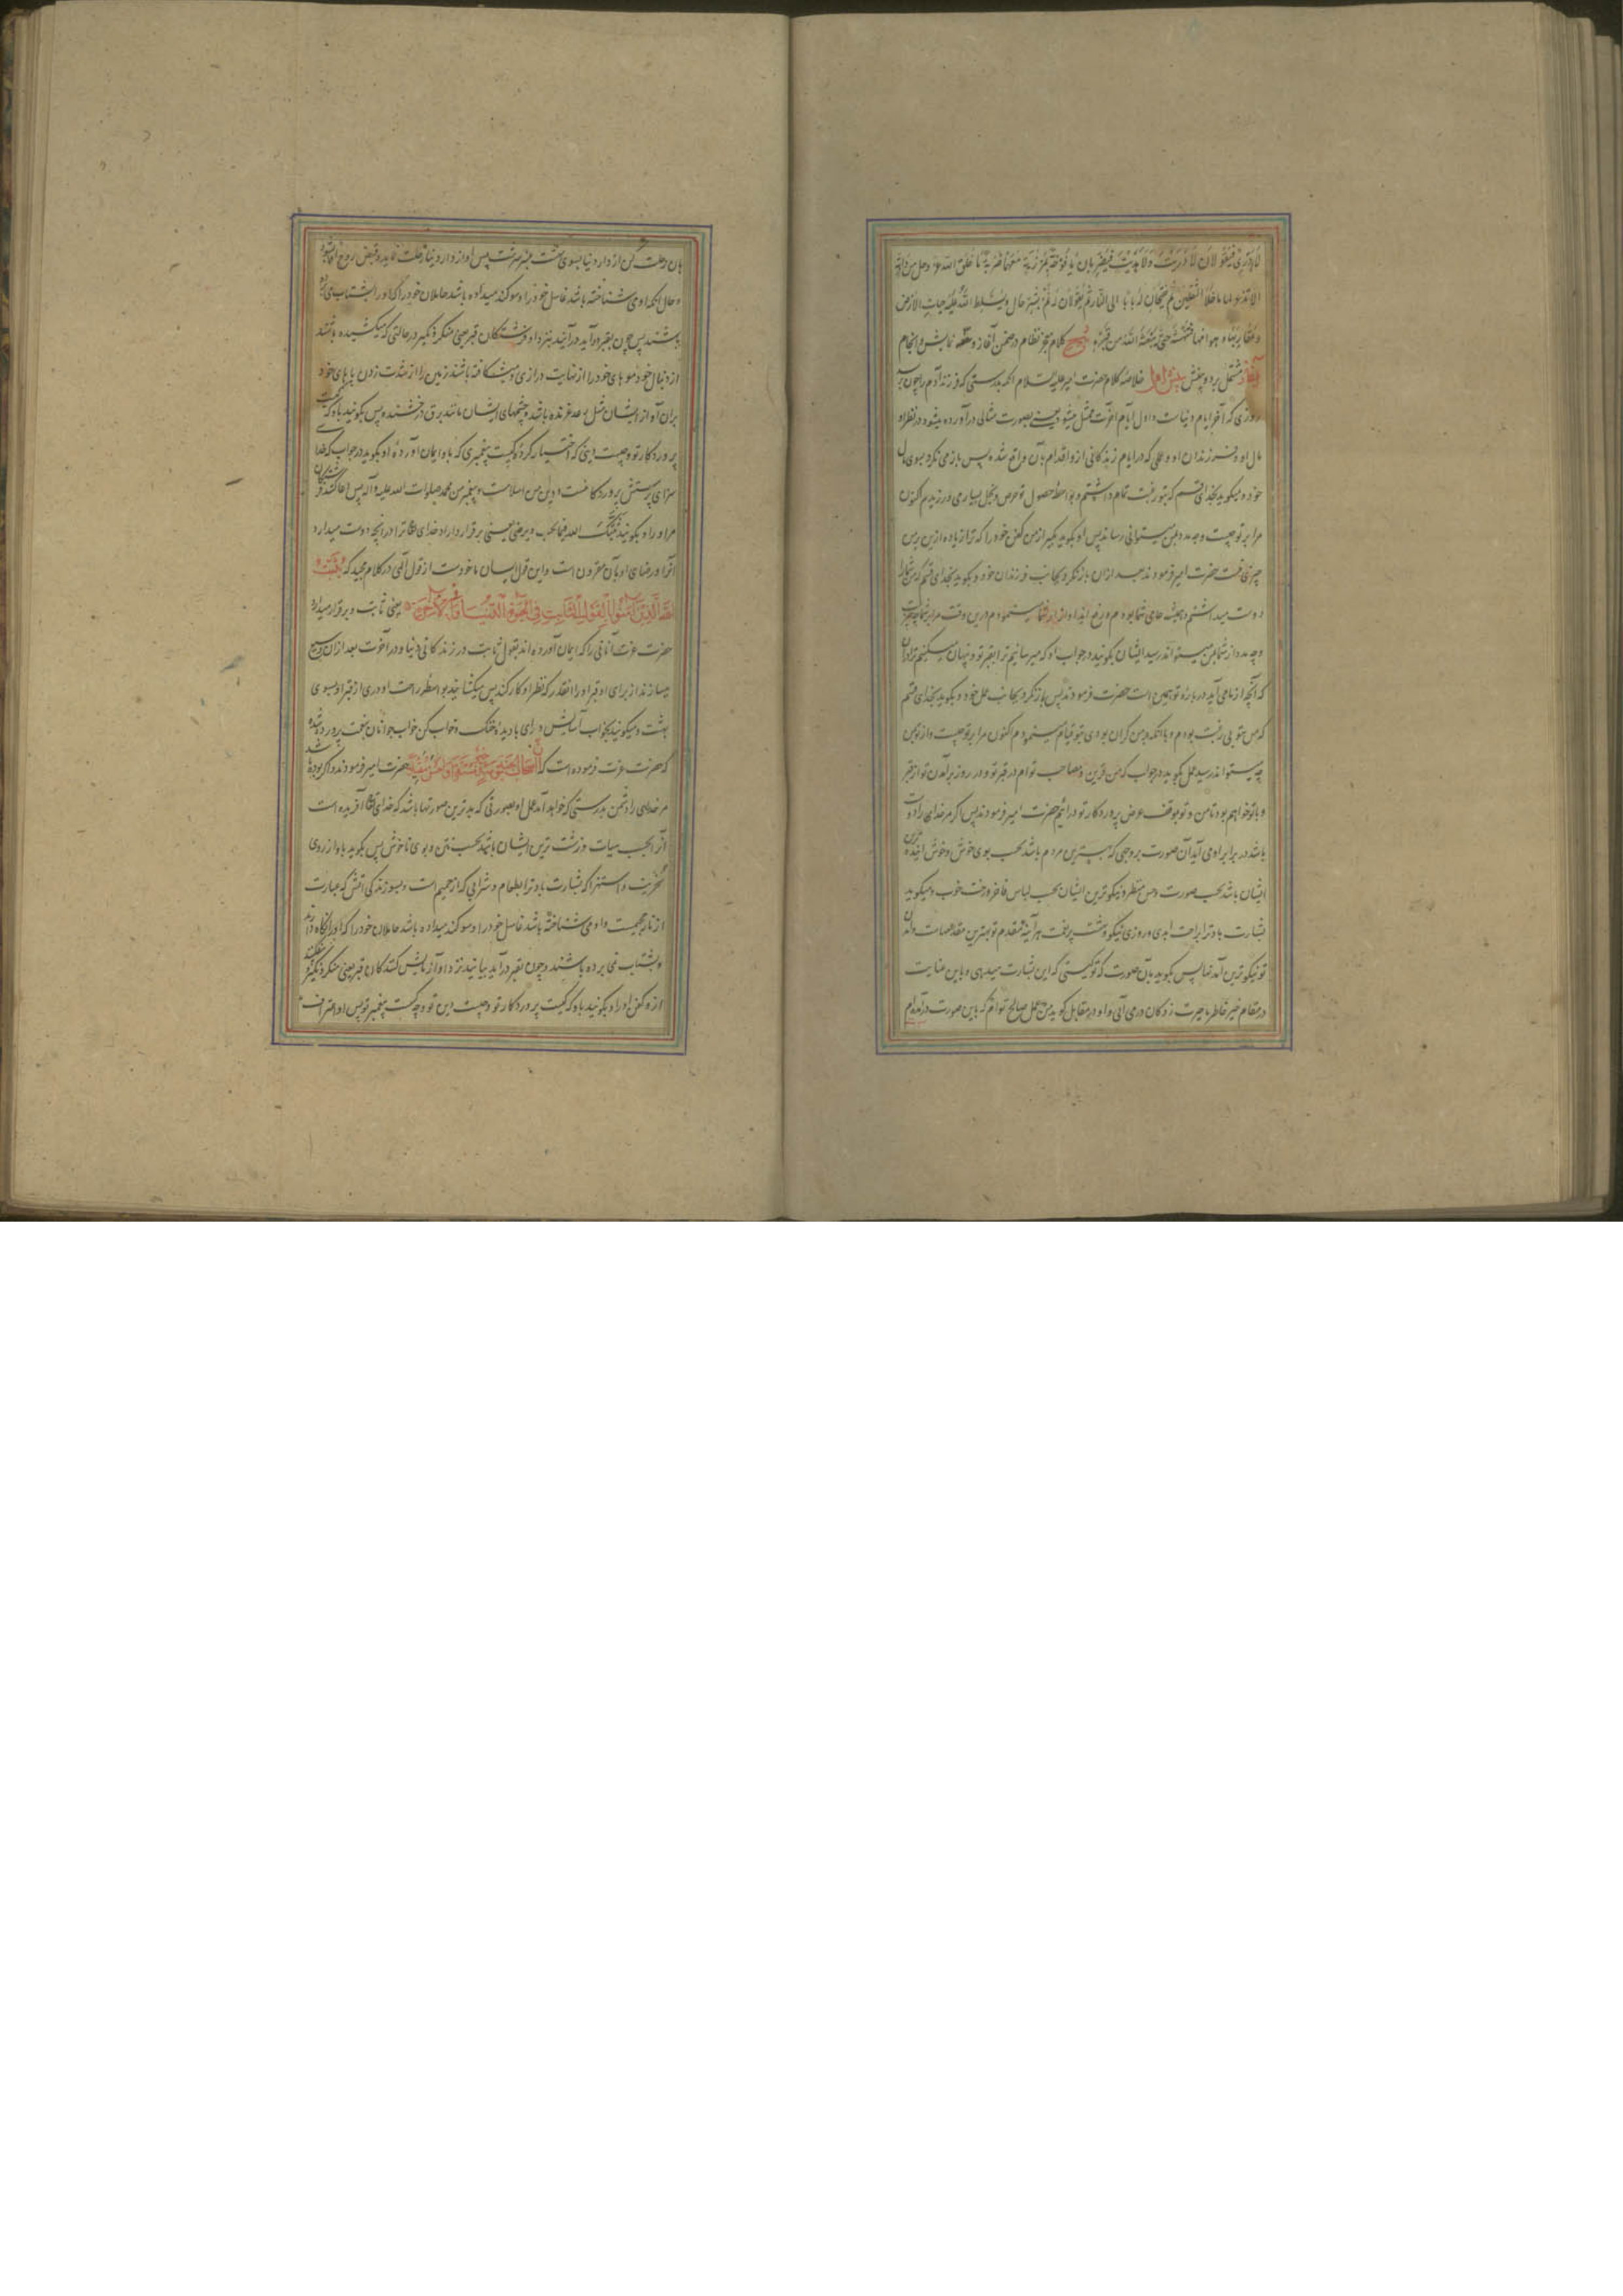 لا ادری فیقولان لا دریت ولا هدیت فیضربان یافوخه بمرزبة معهما ضربة ما خلق الله عز وجل من دابة
الا تذعر لها ما خلا الثقلین ثم یفتحان له بابا الی النار ثم یقولان له نم بشر حال ویسلط الله علیه حیات الارض
وعقاربها وهوامها فتنهشه حتی یبعثه الله من قبره شرح کلام معجز نظام در ضمن آغاز و نمایش و انجام
آغاز مشتمل بر دو بخش بخش اول خلاصه کلام حضرت امیر علیه السلام آنکه بدرستی که فرزند آدم را چون
روزی که آخر ایام دنیاست و اول ایام آخرت ممثل میشود یعنی بصورت مثالی درآورده میشود در نظر او
مال او و فرزندان او و عملی که در ایام زندگانی از و اقدام بآن واقع شده پس باز می نگرد بسوی مال
خود و میگوید بخدای قسم که بتو رغبت تمام داشتم و بواسطه حصول تو حرص و بخل بسیار می ورزیدم اکنون
مرا بر تو چیست و چه مدد بمن میتوانی رسانید پس او بگوید بگیر از من کفن خود را که ترا زیاده ازین بر من
چیزی نیست حضرت امیر فرمودند بعد ازان باز نگرد بجانب فرزندان خود و بگوید بخدای قسم که من شما را
دوست میداشتم و حامی شما بودم و رنج ایذا و از شما مینمودم درین وقت مرا بر شما چیست
و چه مدد از شما بمن میتواند رسید ایشان بگویند در جواب او که میرسانیم ترا بقبر تو و پنهان میکنیم ترا دران
که آنچه از ما می آید در باره تو همین است حضرت فرمودند پس باز نگرد بجانب عمل خود و بگوید بخدای قسم
که من بتو بی رغبت بودم و با آنکه بر من گران بودی بتو قیام مینمودم اکنون مرا بر تو چیست و از تو بمن
چه میتواند رسید عمل بگوید در جواب که من قرین و مصاحب توام در قبر تو و در روز برآمدن تو از قبر
و با تو خواهم بود تا من و تو بموقف عرض پروردگار تو درآئیم حضرت امیر فرمودند پس اگر مر خدای را دوست
باشد در برابر او می آید آن صورت بروجهی که بهترین مردم باشد بحسب بوی خوش و خوش آینده ترین
ایشان باشد بحسب صورت و حسن منظر و نیکوترین ایشان بحسب لباس فاخر و رخت خوب و میگوید
بشارت باد ترا براحت ابدی و روزی نیکو و بهشت پرنعمت هر آینه مقدم تو بهترین مقدمهاست و آمدن
تو نیکوترین آمدنها پس بگوید بآن صورت که تو کیستی که این بشارت میدهی و باین عنایت
در مقام جبر خاطر ما حیرت زدگان درمی آئی و او در مقابل گوید من عمل صالح توام که باین صورت درآمده ام
هان رحلت کن از دار دنیا بسوی بهشت عنبرسرشت پس او از دار دنیا رحلت نماید و قبض روح او نمایند
و حال آنکه او می شناخته باشد غاسل خود را و سوگند میداده باشد حاملان خود را که او را بشتاب می برده
باشند پس چون بقبر درآید درآیند بنزد او فرشتگان قبر یعنی منکر و نکیر در حالتی که میکشیده باشند
از دنبال خود موهای خود را از نهایت درازی و میشکافته باشند زمین را از شدت زدن پاهای خود
بران آواز ایشان مثل رعد غرنده باشد و چشمهای ایشان مانند برق درخشنده پس بگویند باو که کیست
پروردگار تو و چیست دینی که اختیار کردۀ و کیست پیغمبری که باو ایمان آوردۀ او بگوید در جواب که خدای
سزای پرستش پروردگار منست و دین من اسلامست و پیغمبر من محمد صلوات الله علیه وآله پس دعا کنند فرشتگان
مر او را و بگویند ثبتک الله فیما تحب و ترضی یعنی برقرار داراد خدای تعالی ترا در آنچه دوست میدارد
آنرا و رضای او بآن مقرون است و این قول ایشان ماخوذست از قول الهی در کلام مجید که یثبت
الله الذین آمنوا بالقول الثابت فی الحیوة الدنیا و فی الآخرة یعنی ثابت و برقرار میدارد
حضرت عزت آنانی را که ایمان آورده اند بقول ثابت در زندگانی دنیا و در آخرت بعد ازان وسیع
میسازند از برای او قبر او را انقدر که نظر او کار کند پس میگشایند بواسطه راحت او دری از قبر او بسوی
بهشت و میگویند بخواب آسایش درای با دیدۀ خنک و خواب کن خواب جوانان بنعمت پرورده شده
که حضرت عزت فرموده است که اصحاب الجنة یومئذ خیر مستقرا و احسن مقیلا حضرت امیر فرمودند و اگر بوده باشد
مر خدای را دشمن بدرستی که خواهد آمد عمل او بصورتی که بدترین صورتها باشد که خدای تعالی آفریده است
آنرا بحسب هیات و زشت ترین ایشان باشد بحسب نتن و بوی ناخوش پس بگوید باو از روی
سخریت و استهزا که بشارت باد ترا بطعام و شرابی که از حمیم است و بسوزندگی آتش که عبارت
از نار جحیمست و او می شناخته باشد غاسل خود را و سوگند میداده باشد حاملان خود را که او را نگاه دارند
و بشتاب نمی برده باشند و چون بقبر درآید بیایند نزد او آزمایش کنندگان قبر یعنی منکر و نکیر و
ازو کفن او را و بگویند باو که کیست پروردگار تو و چیست دین تو و چه کس است پیغمبر تو پس او اعتراف